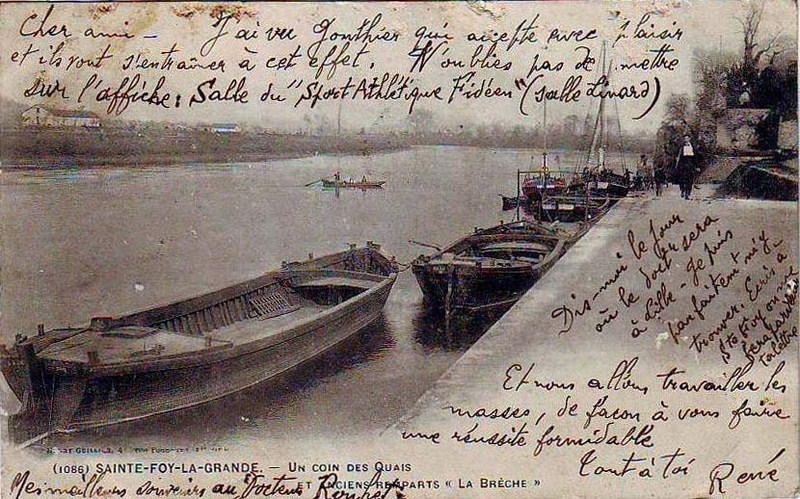 Cher ami - J'ai vu Gonthier qui accepte avec plaisir
et ils vont s'entraîner à cet effet. N'oublies pas de mettre
sur l'affiche: Salle du "Sport Athlétique Fidéen" (salle Linard)
Dis-moi le jour
où le doct. sera
à Lille - Je puis
parfaitement m'y
trouver. Ecris à
Ste Foy on me
fera parvenir
la lettre
Et nous allons travailler les
masses, de façon à vous faire
une réussite formidable
Tout à toi René
(1086) SAINTE-FOY-LA-GRANDE. — UN COIN DES QUAIS
ET ANCIENS REMPARTS « LA BRÈCHE »
Mes meilleurs souvenirs au Docteur